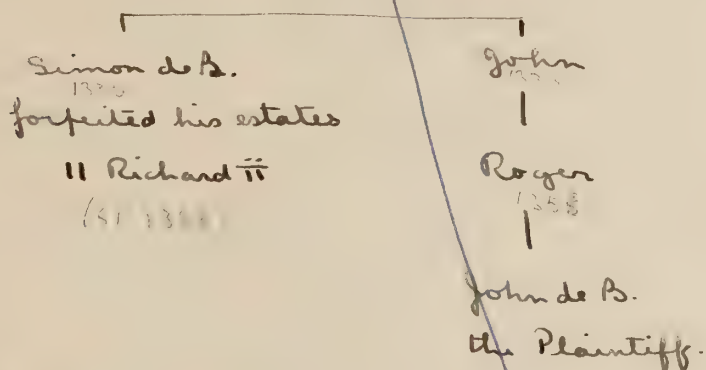 Simon de B.
forfeited his estates
11 Richard ii
John
Roger
1358
John de B.
the Plaintiff.